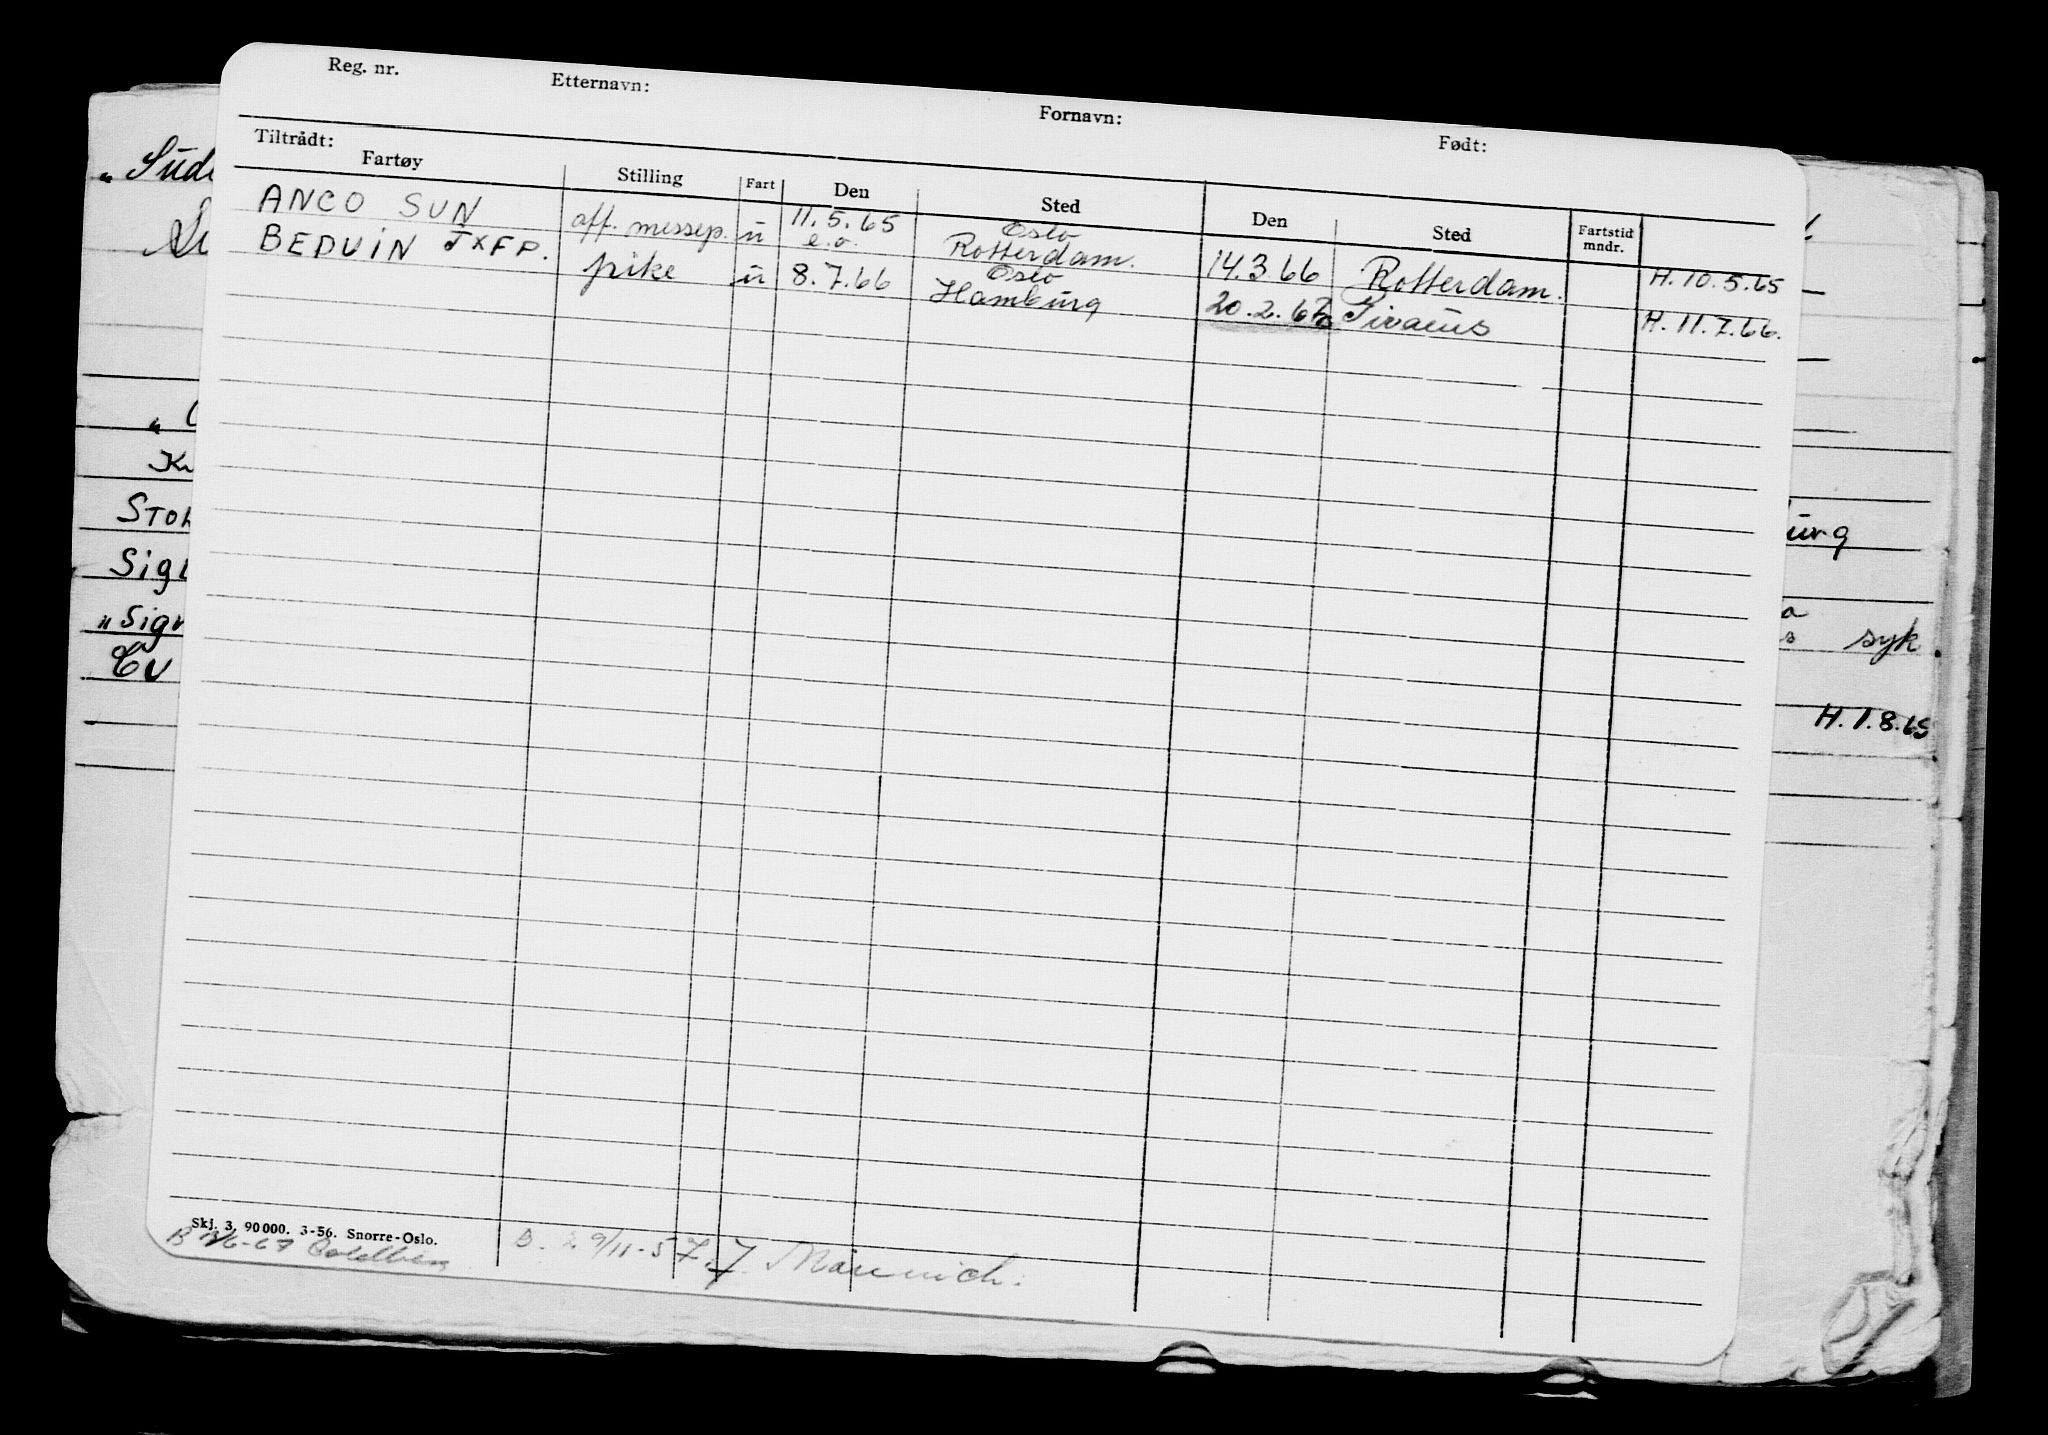 Reg. nr. Etternavn: Fornavn: Født:
Tiltrådt:
Fartøy Stilling Fart Den Sted Den Sted Fartstid mndr.
ANCO SUN off. messep. u 11.5.65 Oslo
e.o. Rotterdam. 14.3.66 Rotterdam. H.10.5.65
BEDUIN JXFP. pike u 8.7.66 Oslo
Hamburg 20.2.67 Piraeus H.11.7.66.
Skj. 3. 90 000. 3-56. Snorre-Oslo.
B. 29/11-57.
Sto
Sig
"Sign
urg
a
s syk.
H.1.8.65